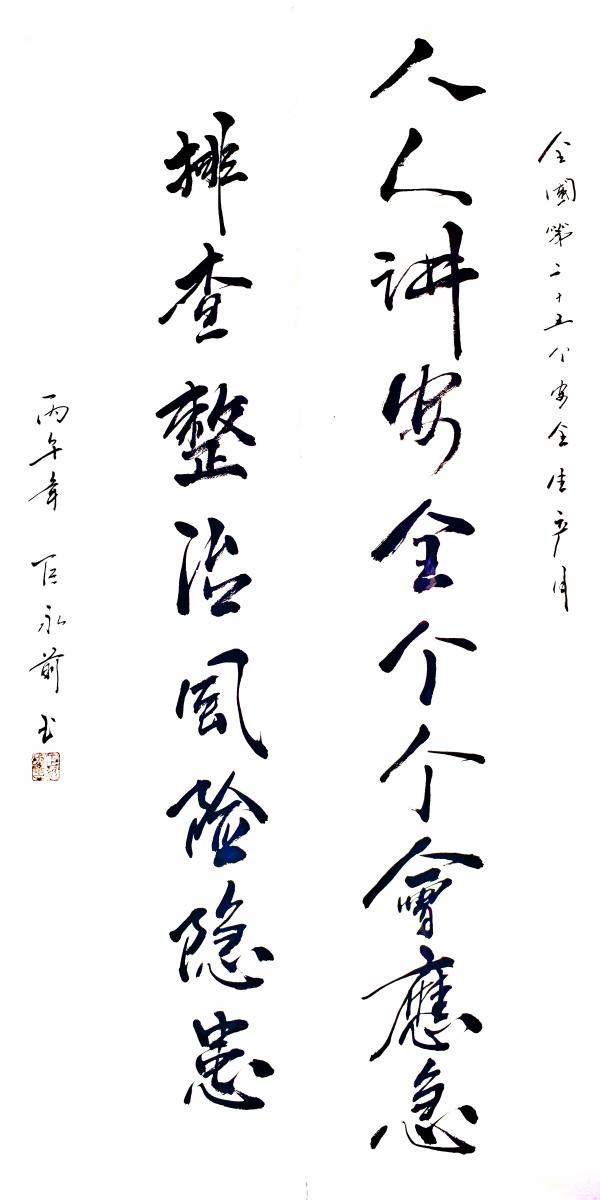 全國第二十五个安全生产月
人人讲安全个个會應急
排查整治风险隐患
丙午年 永前书